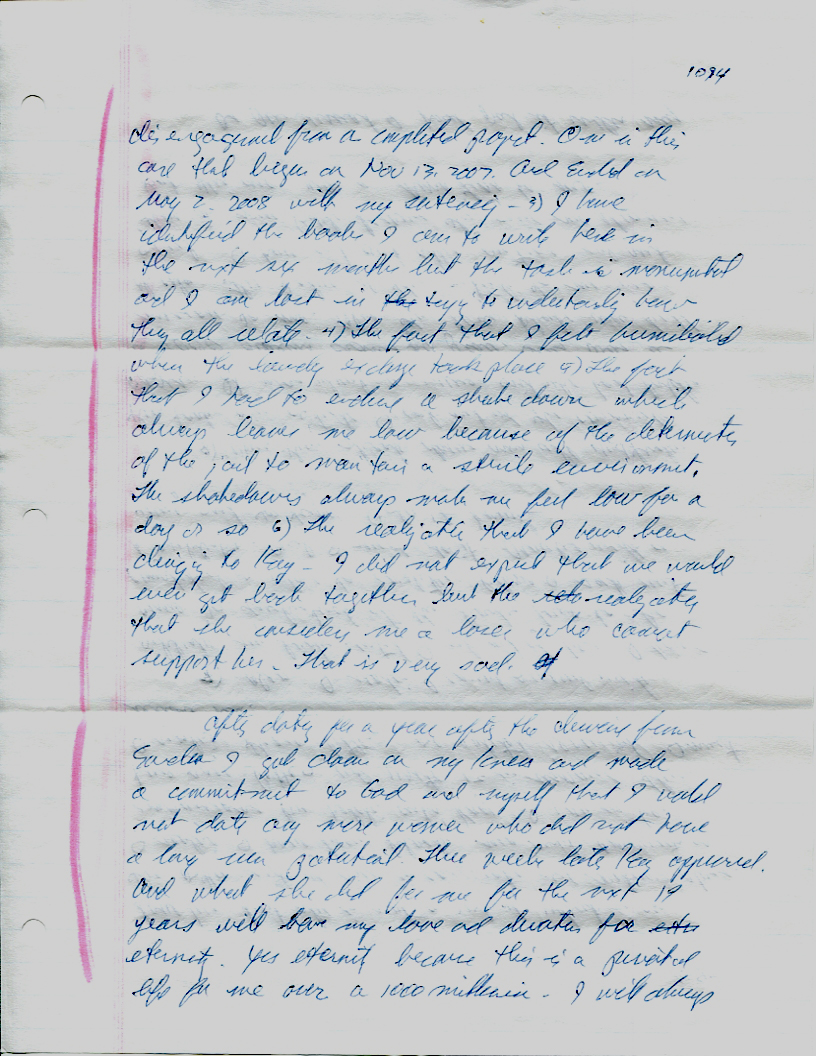 1094
disengagement from a completed project. One in this
case that began on Nov 13, 2007. And Ended on
May 2, 2008 with my sentencing - 3) I have
identified the books I am to write here in
the next six months but the task is monumental
and I am lost in the trying to how
they all relate. 4) The fact that I felt humiliated
when the exchange took place 5) The fact
that I had to endure a shake down which
always leaves me low because of the
of the jail to maintain a sterile environment.
The shakedowns always make me feel low for a
day or so 6) The realization that I have been
clinging to Kay - I did not expect that we would
ever get back together but the realization
that she considers me a loser who cannot
support her. That is very sad.
After dating for a year after the divorce from
Sandra I got down on my knees and made
a commitment to God and myself that I would
not date any more women who did not have
a long run potential. Three weeks later Kay appeared.
And what she did for me for the next 19
years will have my love and devotion for
eternity. Yes eternity because this is a pivotal
life for me over a 1000 millennia - I will always